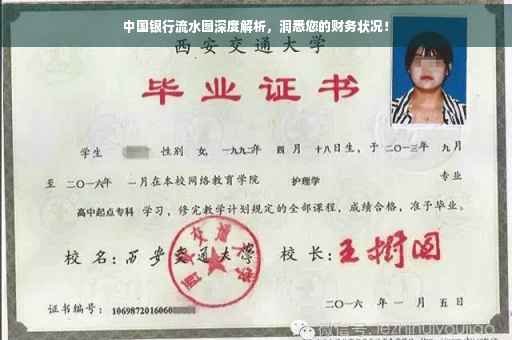 中国银行流水图深度解析，洞悉您的财务状况！
西安交通大学
毕业证书
学生 性别 女，一九九二年 四 月 十八日生，于 二〇一三年 九月
至 二〇一六年 一月在本校网络教育学院 护理学 专业
高中起点专科 学习，修完教学计划规定的全部课程，成绩合格，准予毕业。
校 名：西安交通大学 校 长：王树国
西安交通大学
证书编号：1069872016060
二〇一六 年 一 月 五 日
微信号: jiezhihuiyoujiao